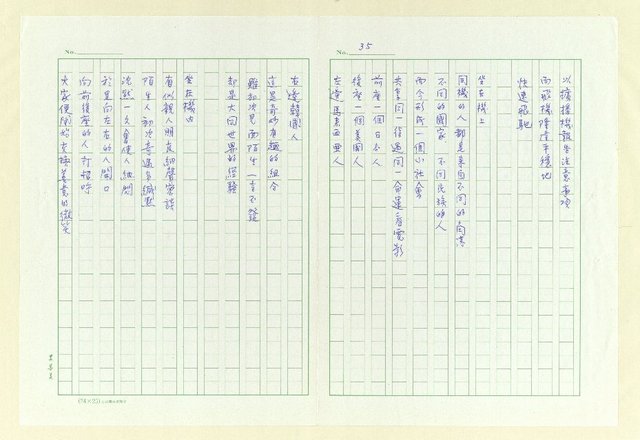 No. 35
以擴播機報告注意事項
而飛機隆隆平穩地
快速飛馳
坐在機上
同機的人都是來自不同的角落
不同的國家 不同民族的人
而今形成一個小社會
共乘同一條
同一命運看電影
前座一個日本人
後座一個美國人
左邊馬來西亞人
No.
右邊韓國人
這是奇妙有趣的組合
雖初次見面陌生一言不發
卻是大同世界的縮影
坐在機內
有似親人朋友細聲密談
陌生人初次奇遇多緘默
沈默一久會使人納悶
於是向左右的人開口
向前後座的人打招呼
大家便開始交換善意的微笑
(24×25)